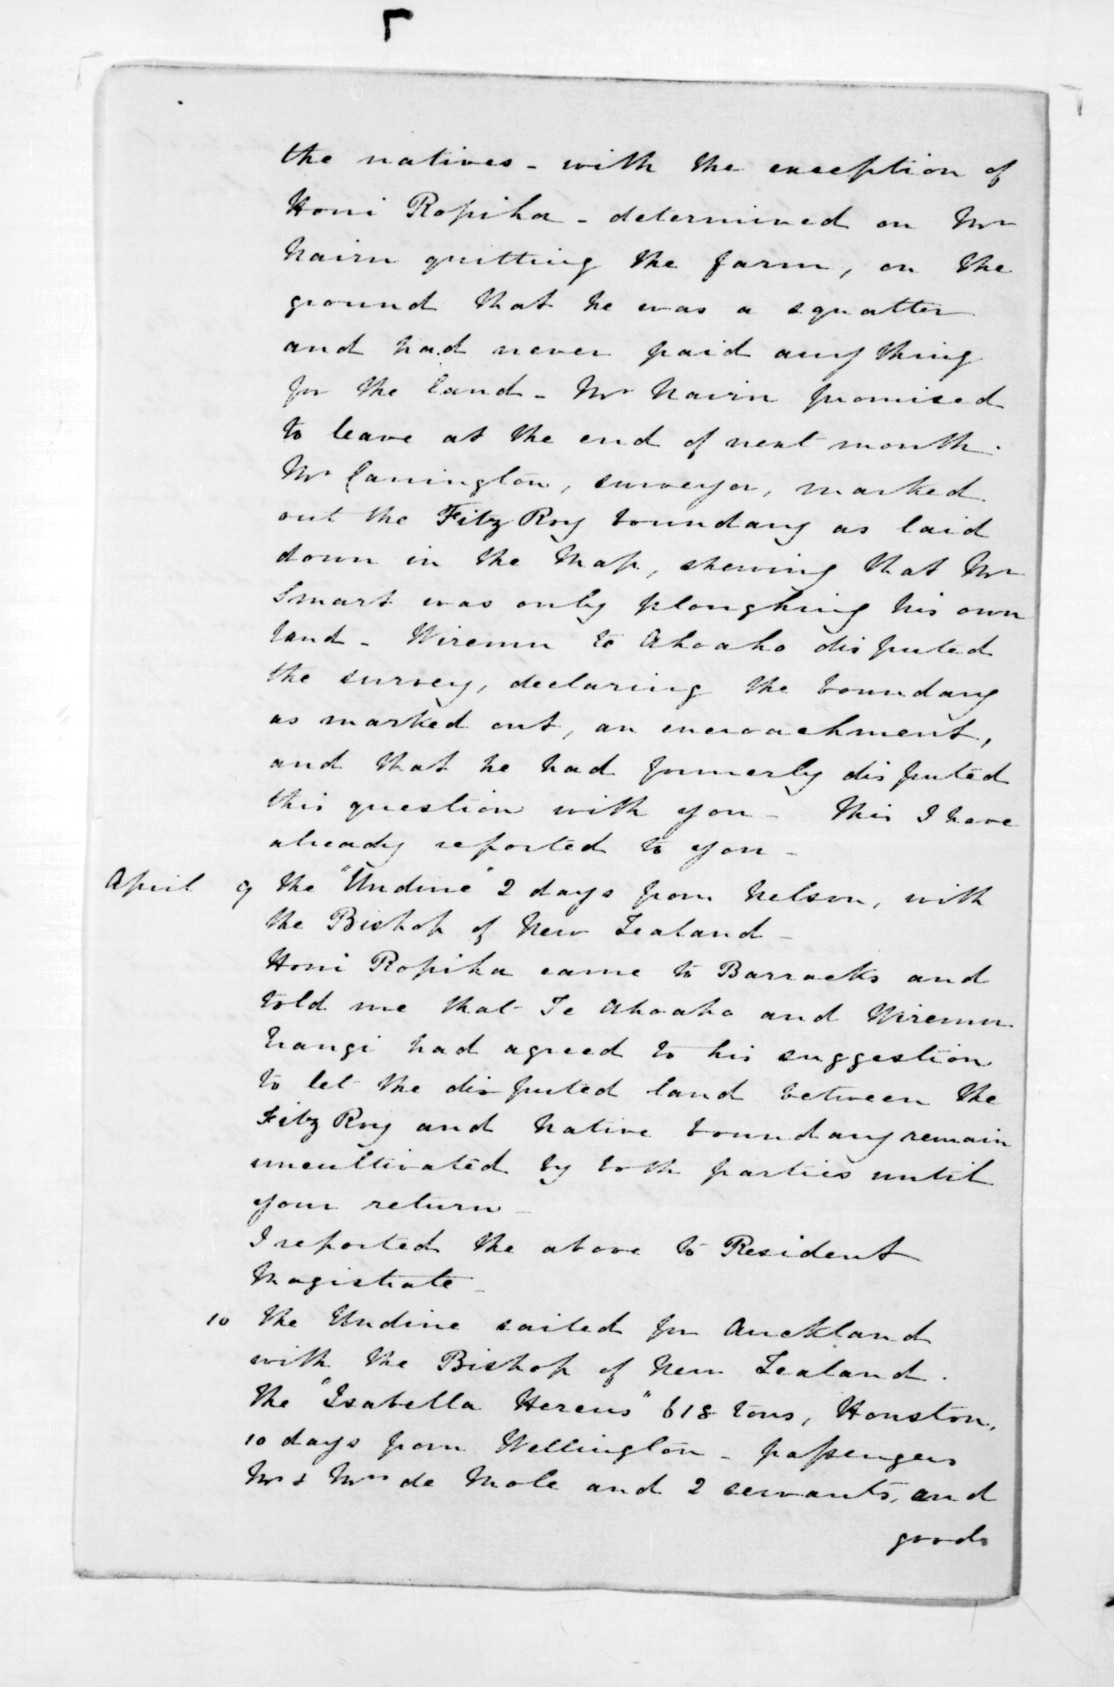 the natives - with the exception of
Honi Ropiha - determined on Mr
Nairn quitting the farm, on the
ground that he was a squatter
and had never paid any thing
for the land - Mr Nairn promised
to leave at the end of next month.
Mr Carrington, surveyor, marked
out the FitzRoy boundary as laid
down in the Map, shewing that Mr
Smart was only ploughing his own
land - Wiremu te Ahoaho disputed
the survey, declaring the boundary
as marked out, an encroachment,
and that he had formerly disputed
this question with you - This I have
already reported to you -
April 9 The "Undine" 2 days from Nelson, with
the Bishop of New Zealand -
Honi Ropiha came to Barracks and
told me that Te Ahoaho and Wiremu
Erangi had agreed to his suggestion
to let the disputed land between the
FitzRoy and Native boundary remain
uncultivated by both parties until
your return -
I reported the above to Resident
Magistrate -
10 The Undine sailed for Auckland
with the Bishop of New Zealand.
The "Isabella Hercus" 618 tons, Houston,
10 days from Wellington - passengers
Mr & Mrs de Mole and 2 servants, and
goods